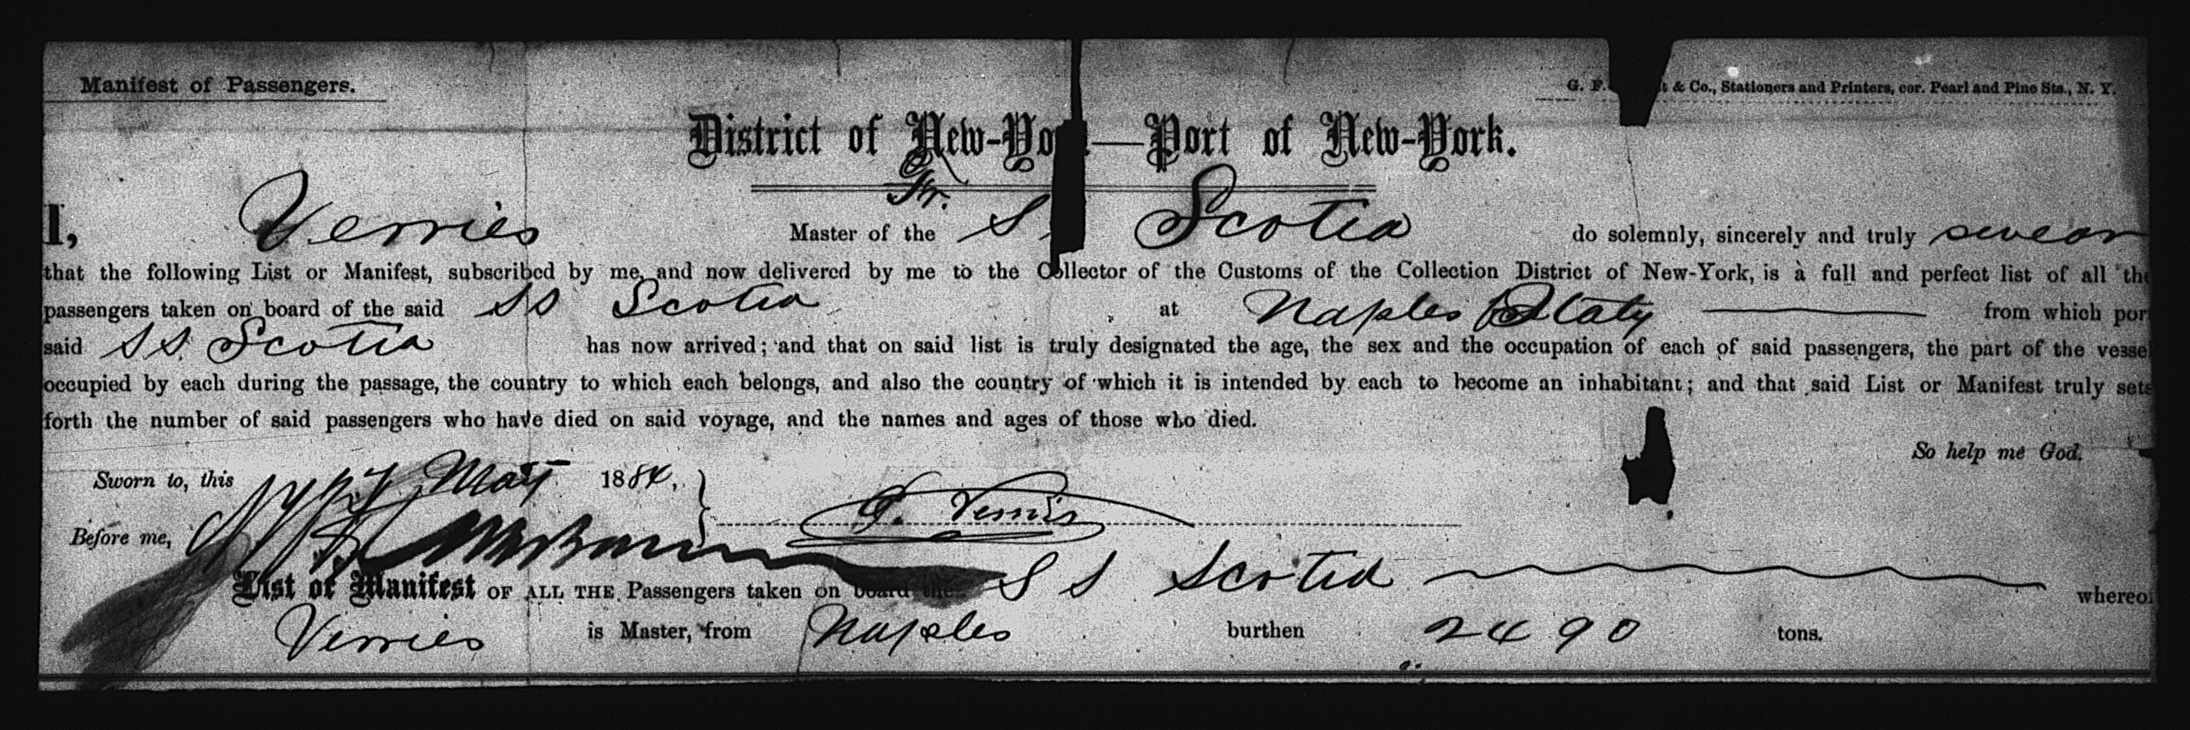 Manifest of Passengers.
G. F. & Co., Stationers and Printers, cor. Pearl and Pine Sts., N. Y.
District of New-Yo —Port of New-York.
Fr.
I, Verries Master of the S. Scotia do solemnly, sincerely and truly swear
that the following List or Manifest, subscribed by me, and now delivered by me to the Collector of the Customs of the Collection District of New-York, is a full and perfect list of all the
passengers taken on board of the said SS Scotia at Naples Italy from which por
said SS. Scotia has now arrived; and that on said list is truly designated the age, the sex and the occupation of each of said passengers, the part of the vesse
occupied by each during the passage, the country to which each belongs, and also the country of which it is intended by each to become an inhabitant; and that said List or Manifest truly sets
forth the number of said passengers who have died on said voyage, and the names and ages of those who died.
So help me God.
Sworn to, this May 1884,
Before me, Verries
List or Manifest OF ALL THE Passengers taken on board the SS Scotia whereo
Verries is Master, from Naples burthen 2490 tons.